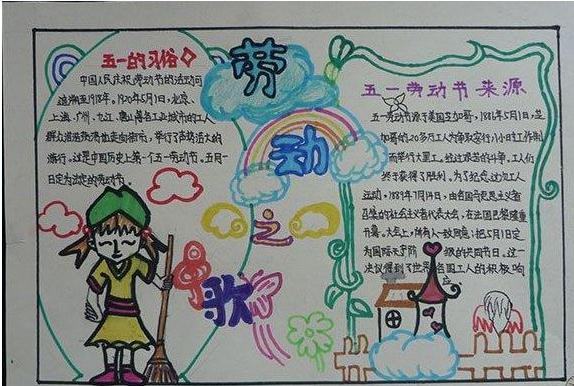 五一的习俗
中国人民庆祝劳动节的活动可
追溯至1918年。1920年5月1日,北京、
上海、广州、九江、唐山等各工业城市的工人
群众浩浩荡荡地走向街市,举行了声势浩大的
游行,这是中国历史上第一个五一劳动节。五月一
日定为法定的劳动节。
劳
动
之
歌
五一劳动节来源
五一劳动节源于美国芝加哥,1886年5月1日,芝
加哥的20多万工人为争取实行八小时工作制
而举行大罢工。经过艰苦的斗争,工人们
终于获得了胜利。为了纪念这次工人
运动。1889年7月14日,由各国马克思主义者
召集的社会主义者代表大会,在法国巴黎隆重
开幕。大会上,所有人一致同意,把5月1日定
为国际无产阶 级的共同节日。这一
决议得到了世界各国工人的积极响
应